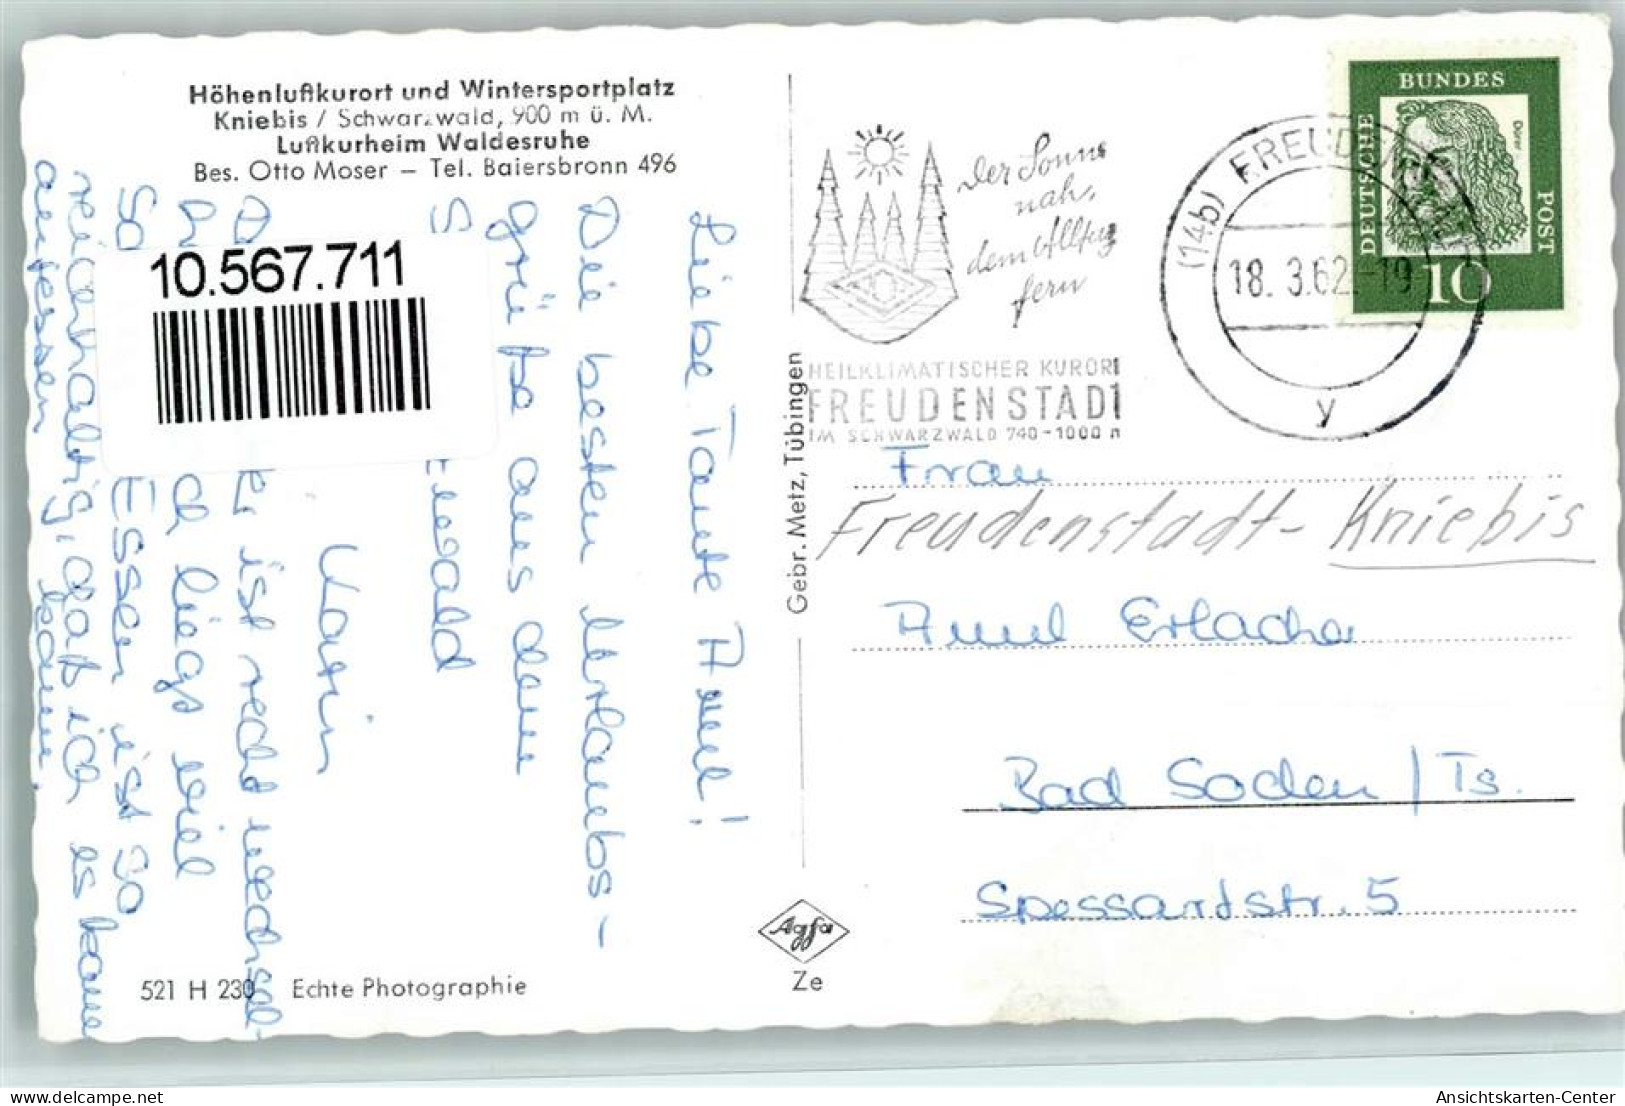 Höhenluftkurort und Wintersportplatz
Kniebis / Schwarzwald, 900 m ü. M.
Luftkurheim Waldesruhe
Bes. Otto Moser – Tel. Baiersbronn 496
10.567.711
Liebe Tante Aenel!
Die besten Urlaubs-
grüße aus dem
S
wald
Karin
D
ist recht wechsel-
liegt viel
So
Essen ist so
reichhaltig, daß ich es kaum
aufessen kann.
521 H 230 Echte Photographie
Gebr. Metz, Tübingen
Agfa
Ze
Der Sonne
nah,
dem Alltag
fern
HEILKLIMATISCHER KURORT
FREUDENSTADT
IM SCHWARZWALD 740-1000 m
(14b) FREUDENSTADT
18. 3.62.-19
y
DEUTSCHE
BUNDES
POST
Dürer
10
Frau
Freudenstadt-Kniebis
Aenel Erlacher
Bad Soden / Ts.
Spessartstr. 5
Ansichtskarten-Center